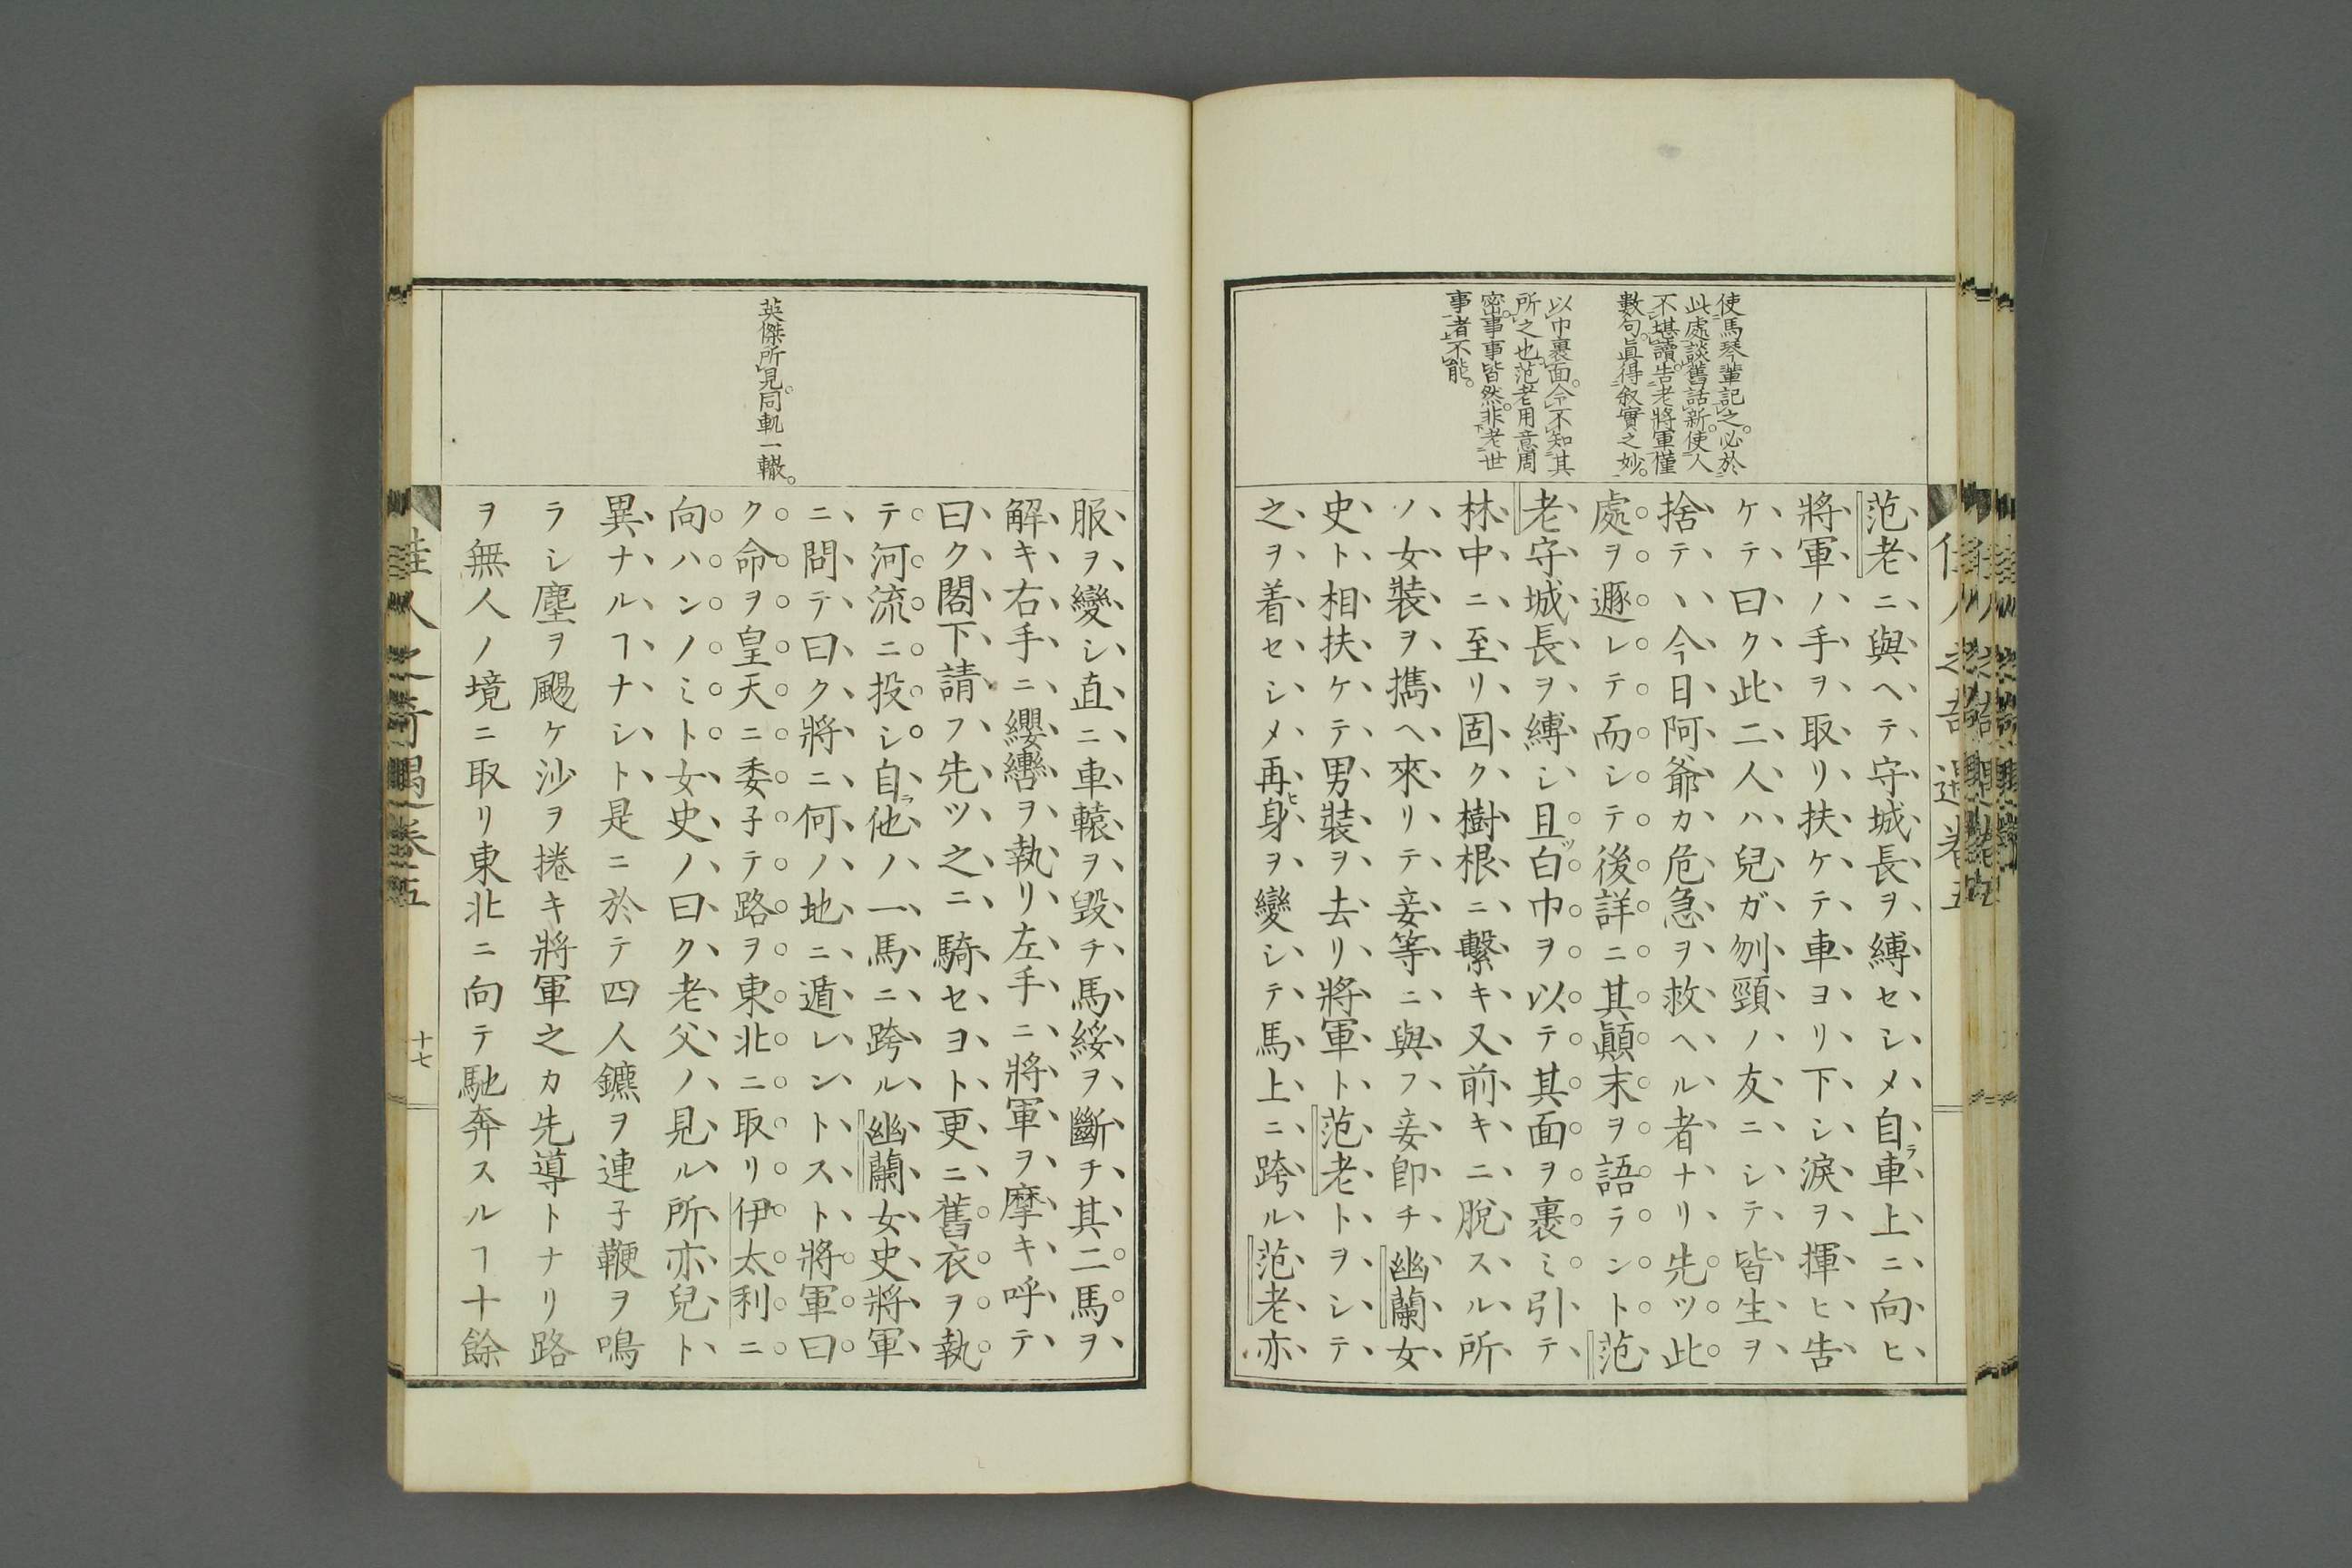 使馬琴輩記之。必於
此處談舊話新。使人
不堪讀。告老將軍僅
數句。眞得敘實之妙。
以巾裹面。今不知其
所之也。范老用意周
密。事事皆然。非老世
事者不能。
范老ニ與ヘテ守城長ヲ縛セシメ自ラ車上ニ向ヒ
將軍ノ手ヲ取リ扶ケテ車ヨリ下シ淚ヲ揮ヒ告
ケテ曰ク此二人ハ兒ガ刎頸ノ友ニシテ皆生ヲ
捨テヽ今日阿爺カ危急ヲ救ヘル者ナリ先ツ此
處ヲ遯レテ而シテ後詳ニ其顚末ヲ語ラント范
老守城長ヲ縛シ且ツ白巾ヲ以テ其面ヲ裹ミ引テ
林中ニ至リ固ク樹根ニ繫キ又前キニ脫スル所
ノ女裝ヲ攜ヘ來リテ妾等ニ與フ妾卽チ幽蘭女
史ト相扶ケテ男裝ヲ去リ將軍ト范老トヲシテ
之ヲ着セシメ再ヒ身ヲ變シテ馬上ニ跨ル范老亦
英傑所見。同軌一轍。
服ヲ變シ直ニ車轅ヲ毀チ馬綏ヲ斷チ其二馬ヲ
解キ右手ニ纓轡ヲ執リ左手ニ將軍ヲ摩キ呼テ
曰ク閣下請フ先ツ之ニ騎セヨト更ニ舊衣ヲ執
テ河流ニ投シ自ラ他ノ一馬ニ跨ル幽蘭女史將軍
ニ問テ曰ク將ニ何ノ地ニ遁レントスト將軍曰
ク命ヲ皇天ニ委子テ路ヲ東北ニ取リ伊太利ニ
向ハンノミト女史ノ曰ク老父ノ見ル所亦兒ト
異ナルヿナシト是ニ於テ四人鑣ヲ連子鞭ヲ鳴
ラシ塵ヲ颺ケ沙ヲ捲キ將軍之カ先導トナリ路
ヲ無人ノ境ニ取リ東北ニ向テ馳奔スルヿ十餘
佳人之奇遇卷五
十七